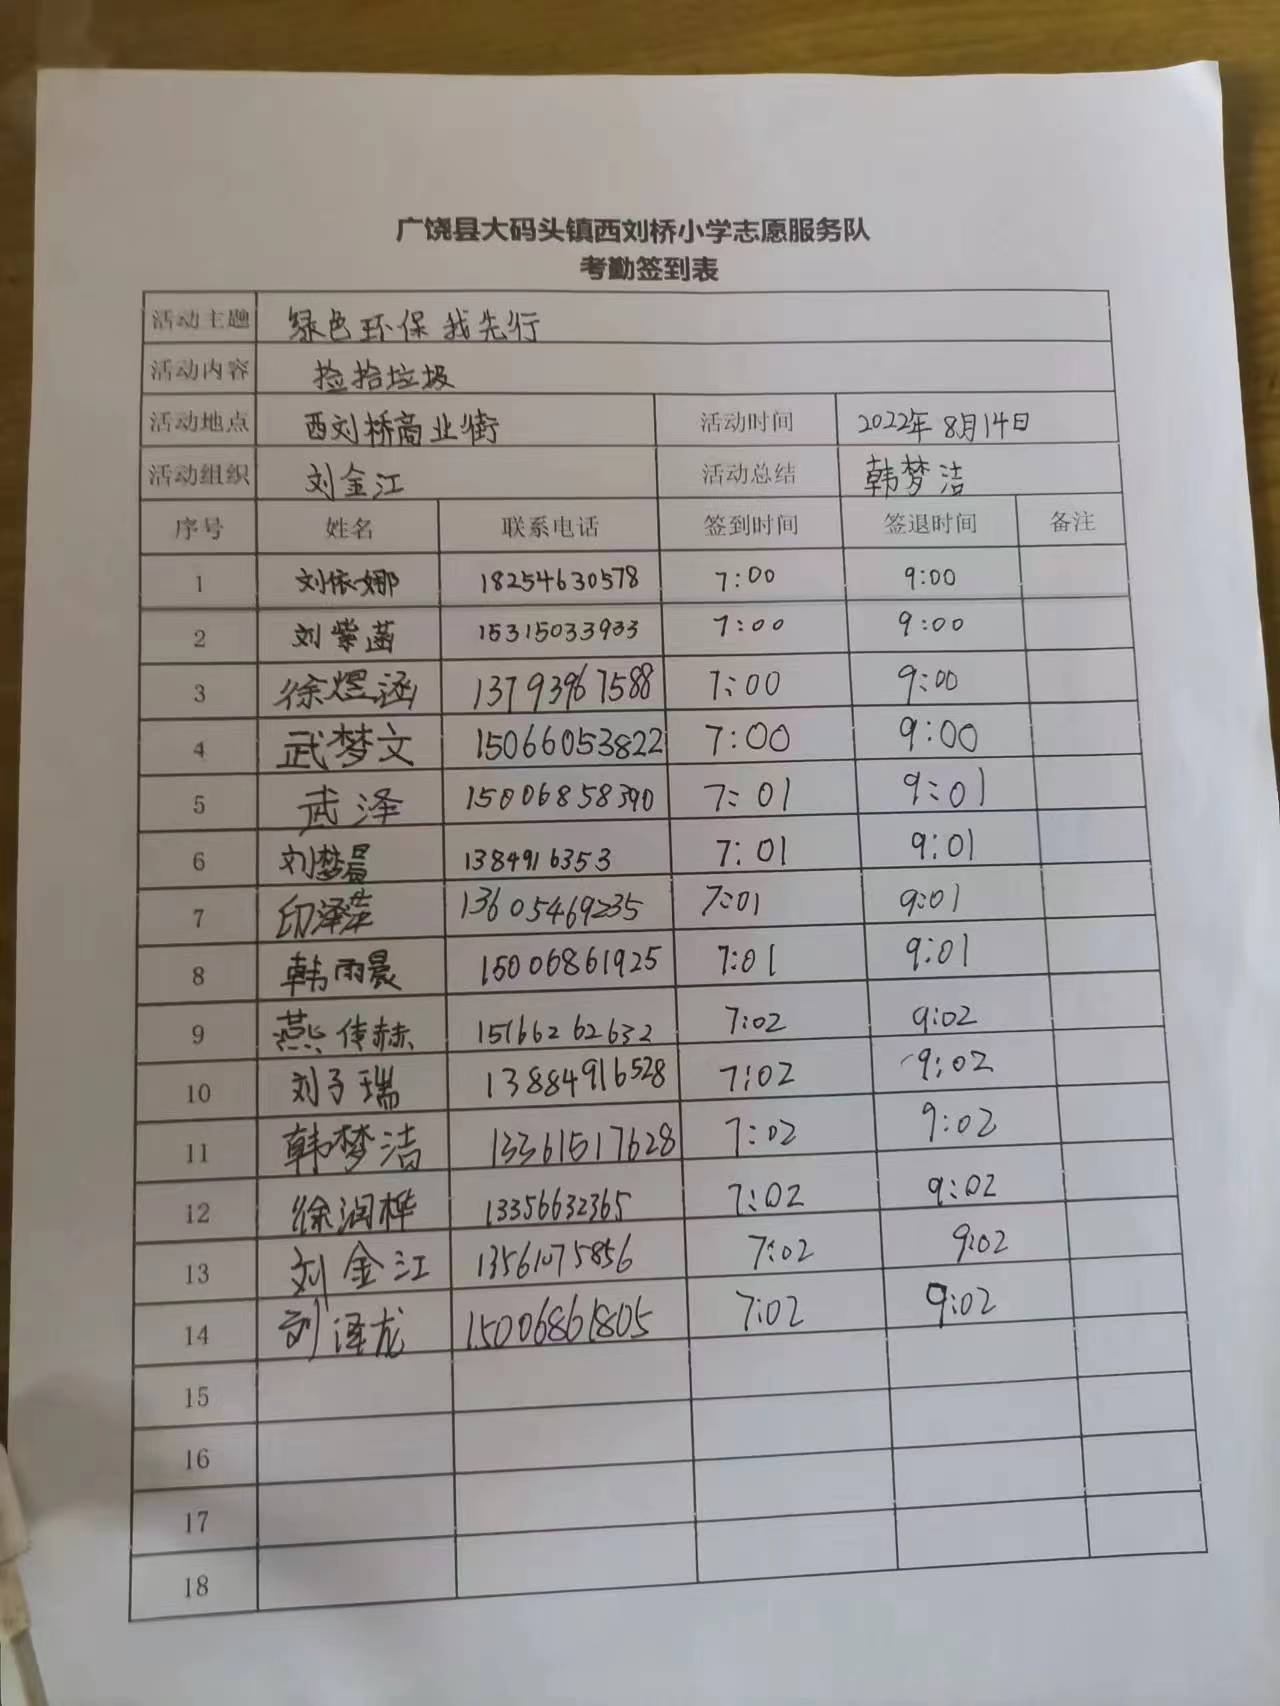 广饶县大码头镇西刘桥小学志愿服务队
考勤签到表
活动主题 绿色环保我先行
活动内容 捡拾垃圾
活动地点 西刘桥商业街 活动时间 2022年8月14日
活动组织 刘金江 活动总结 韩梦洁
序号 姓名 联系电话 签到时间 签退时间 备注
1 刘依娜 18254630578 7:00 9:00
2 刘紫菡 15315033933 7:00 9:00
3 徐煜涵 13793967588 7:00 9:00
4 武梦文 15066053822 7:00 9:00
5 武泽 15006858390 7:01 9:01
6 刘梦晨 1384916353 7:01 9:01
7 印泽萍 13605469235 7:01 9:01
8 韩雨晨 15006861925 7:01 9:01
9 燕传赫 15166262632 7:02 9:02
10 刘子瑞 13884916528 7:02 9:02
11 韩梦洁 13361517628 7:02 9:02
12 徐润桦 13356632365 7:02 9:02
13 刘金江 13561075856 7:02 9:02
14 刘泽龙 15006861805 7:02 9:02
15
16
17
18